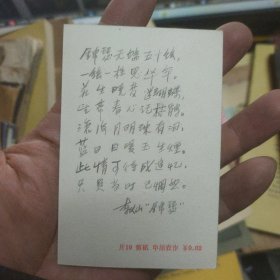 锦瑟无端五十弦，
一弦一柱思华年。
庄生晓梦迷蝴蝶，
望帝春心托杜鹃。
沧海月明珠有泪，
蓝田日暖玉生烟。
此情可待成追忆，
只是当时已惘然。
李商隐"锦瑟"
共10 ¥0.02